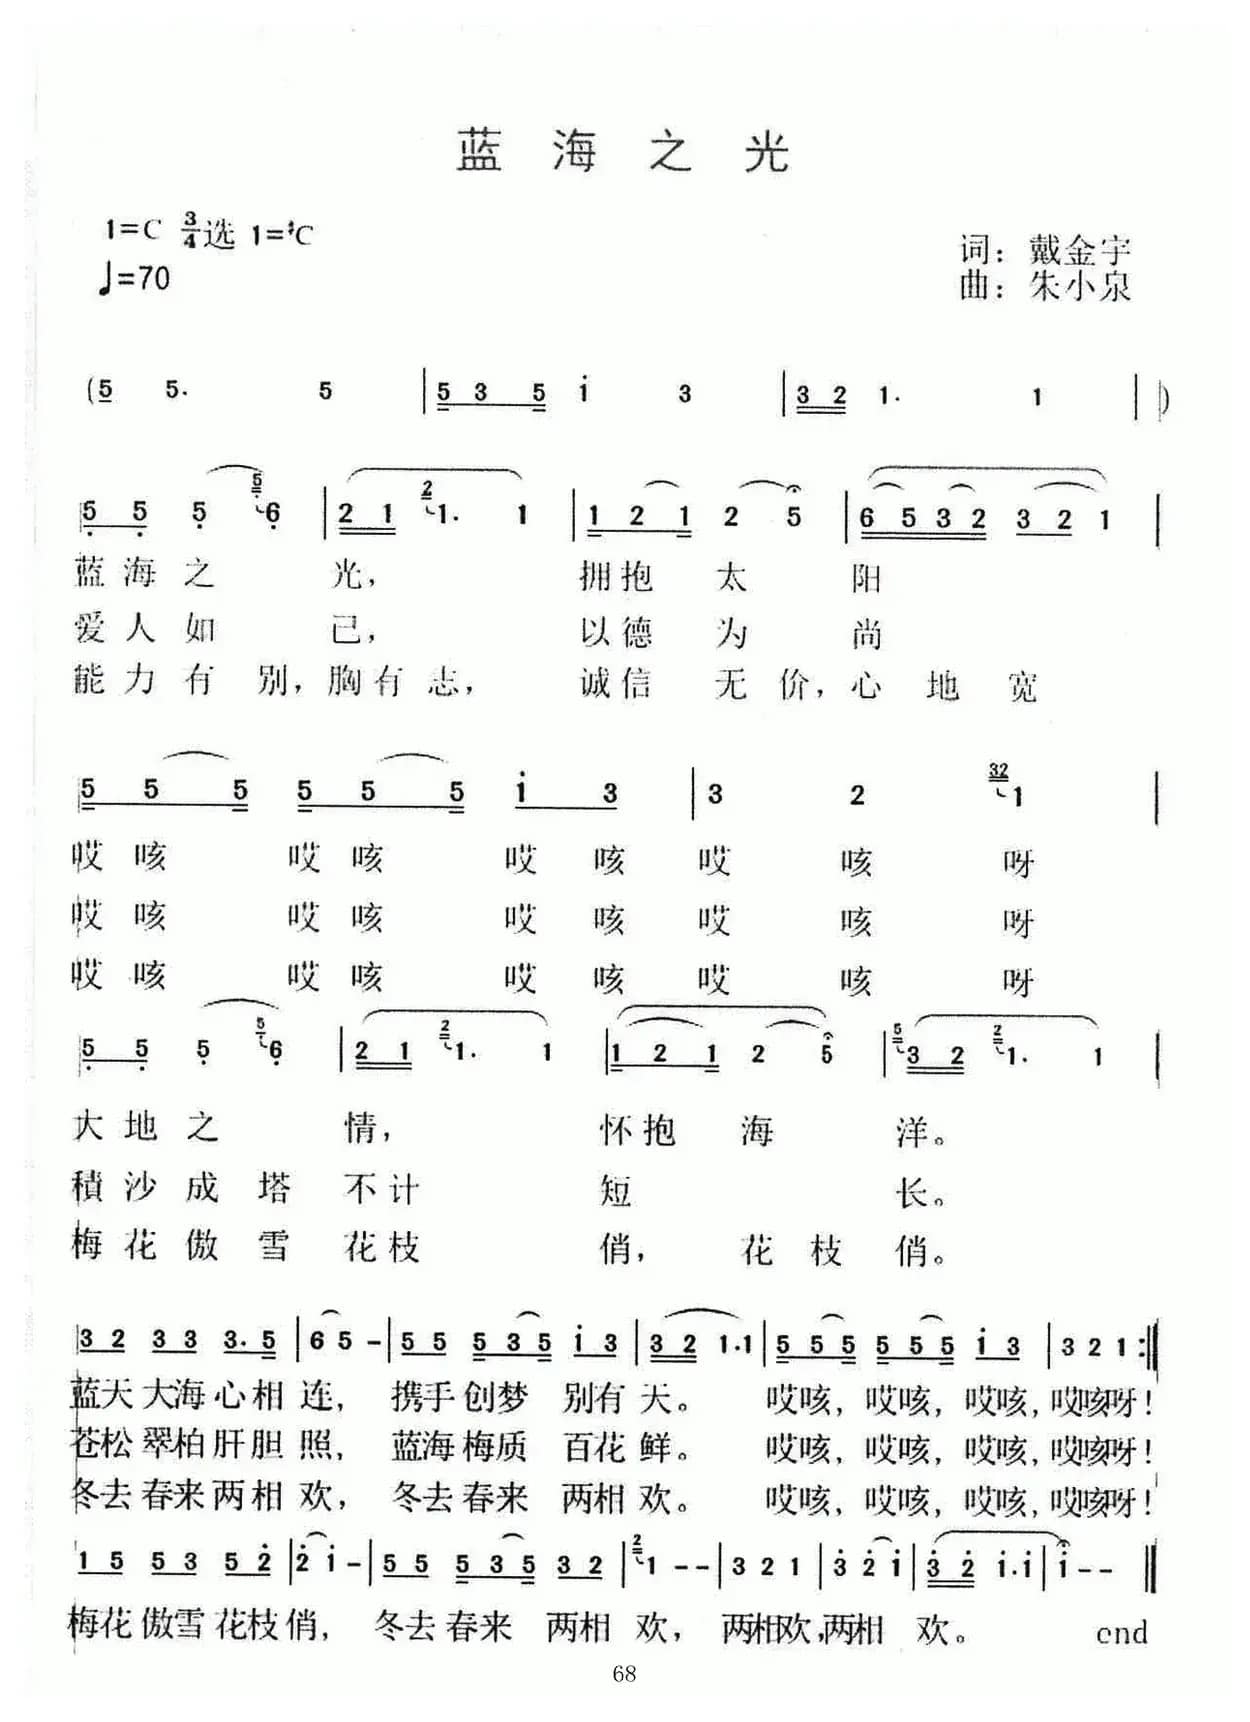 蓝海之光
1=C 3/4 选 1=♯C
词：戴金宇
♩=70
曲：朱小泉
(5 5. 5 | 5 3 5 i 3 | 3 2 1. 1 | )
5 5 5 5 6 | 2 1 2 1. 1 | 1 2 1 2 5 | 6 5 3 2 3 2 1 |
蓝海之 光， 拥抱 太 阳
爱人如 己， 以德 为 尚
能力有 别，胸有志， 诚信 无 价，心 地 宽
5 5 5 5 5 5 i 3 | 3 2 32 1 |
哎咳 哎咳 哎 咳 哎 咳 呀
哎咳 哎咳 哎 咳 哎 咳 呀
哎咳 哎咳 哎 咳 哎 咳 呀
5 5 5 5 6 | 2 1 2 1. 1 | 1 2 1 2 5 | 5 3 2 2 1. 1 |
大地之 情， 怀抱 海 洋。
積沙成塔 不计 短 长。
梅花傲雪 花枝 俏， 花枝俏。
3 2 3 3 3. 5 | 6 5 - | 5 5 5 3 5 i 3 | 3 2 1.1 | 5 5 5 5 5 5 i 3 | 3 2 1 :‖
蓝天大海心相连， 携手创梦 别有天。 哎咳，哎咳，哎咳，哎咳呀！
苍松翠柏肝胆照， 蓝海梅质 百花鲜。 哎咳，哎咳，哎咳，哎咳呀！
冬去春来两相欢， 冬去春来 两相欢。 哎咳，哎咳，哎咳，哎咳呀！
1 5 5 3 5 2 | 2 i - | 5 5 5 3 5 3 2 | 2 1 - - | 3 2 1 | 3 2 i | 3 2 i.i | i - - ‖
梅花傲雪花枝俏， 冬去春来 两相欢，两相欢，两相 欢。 end
68